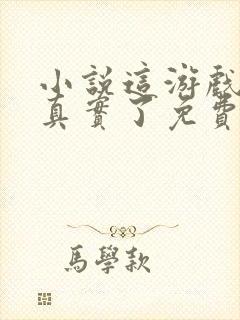 小說這游戲
真實了免費
馬學款